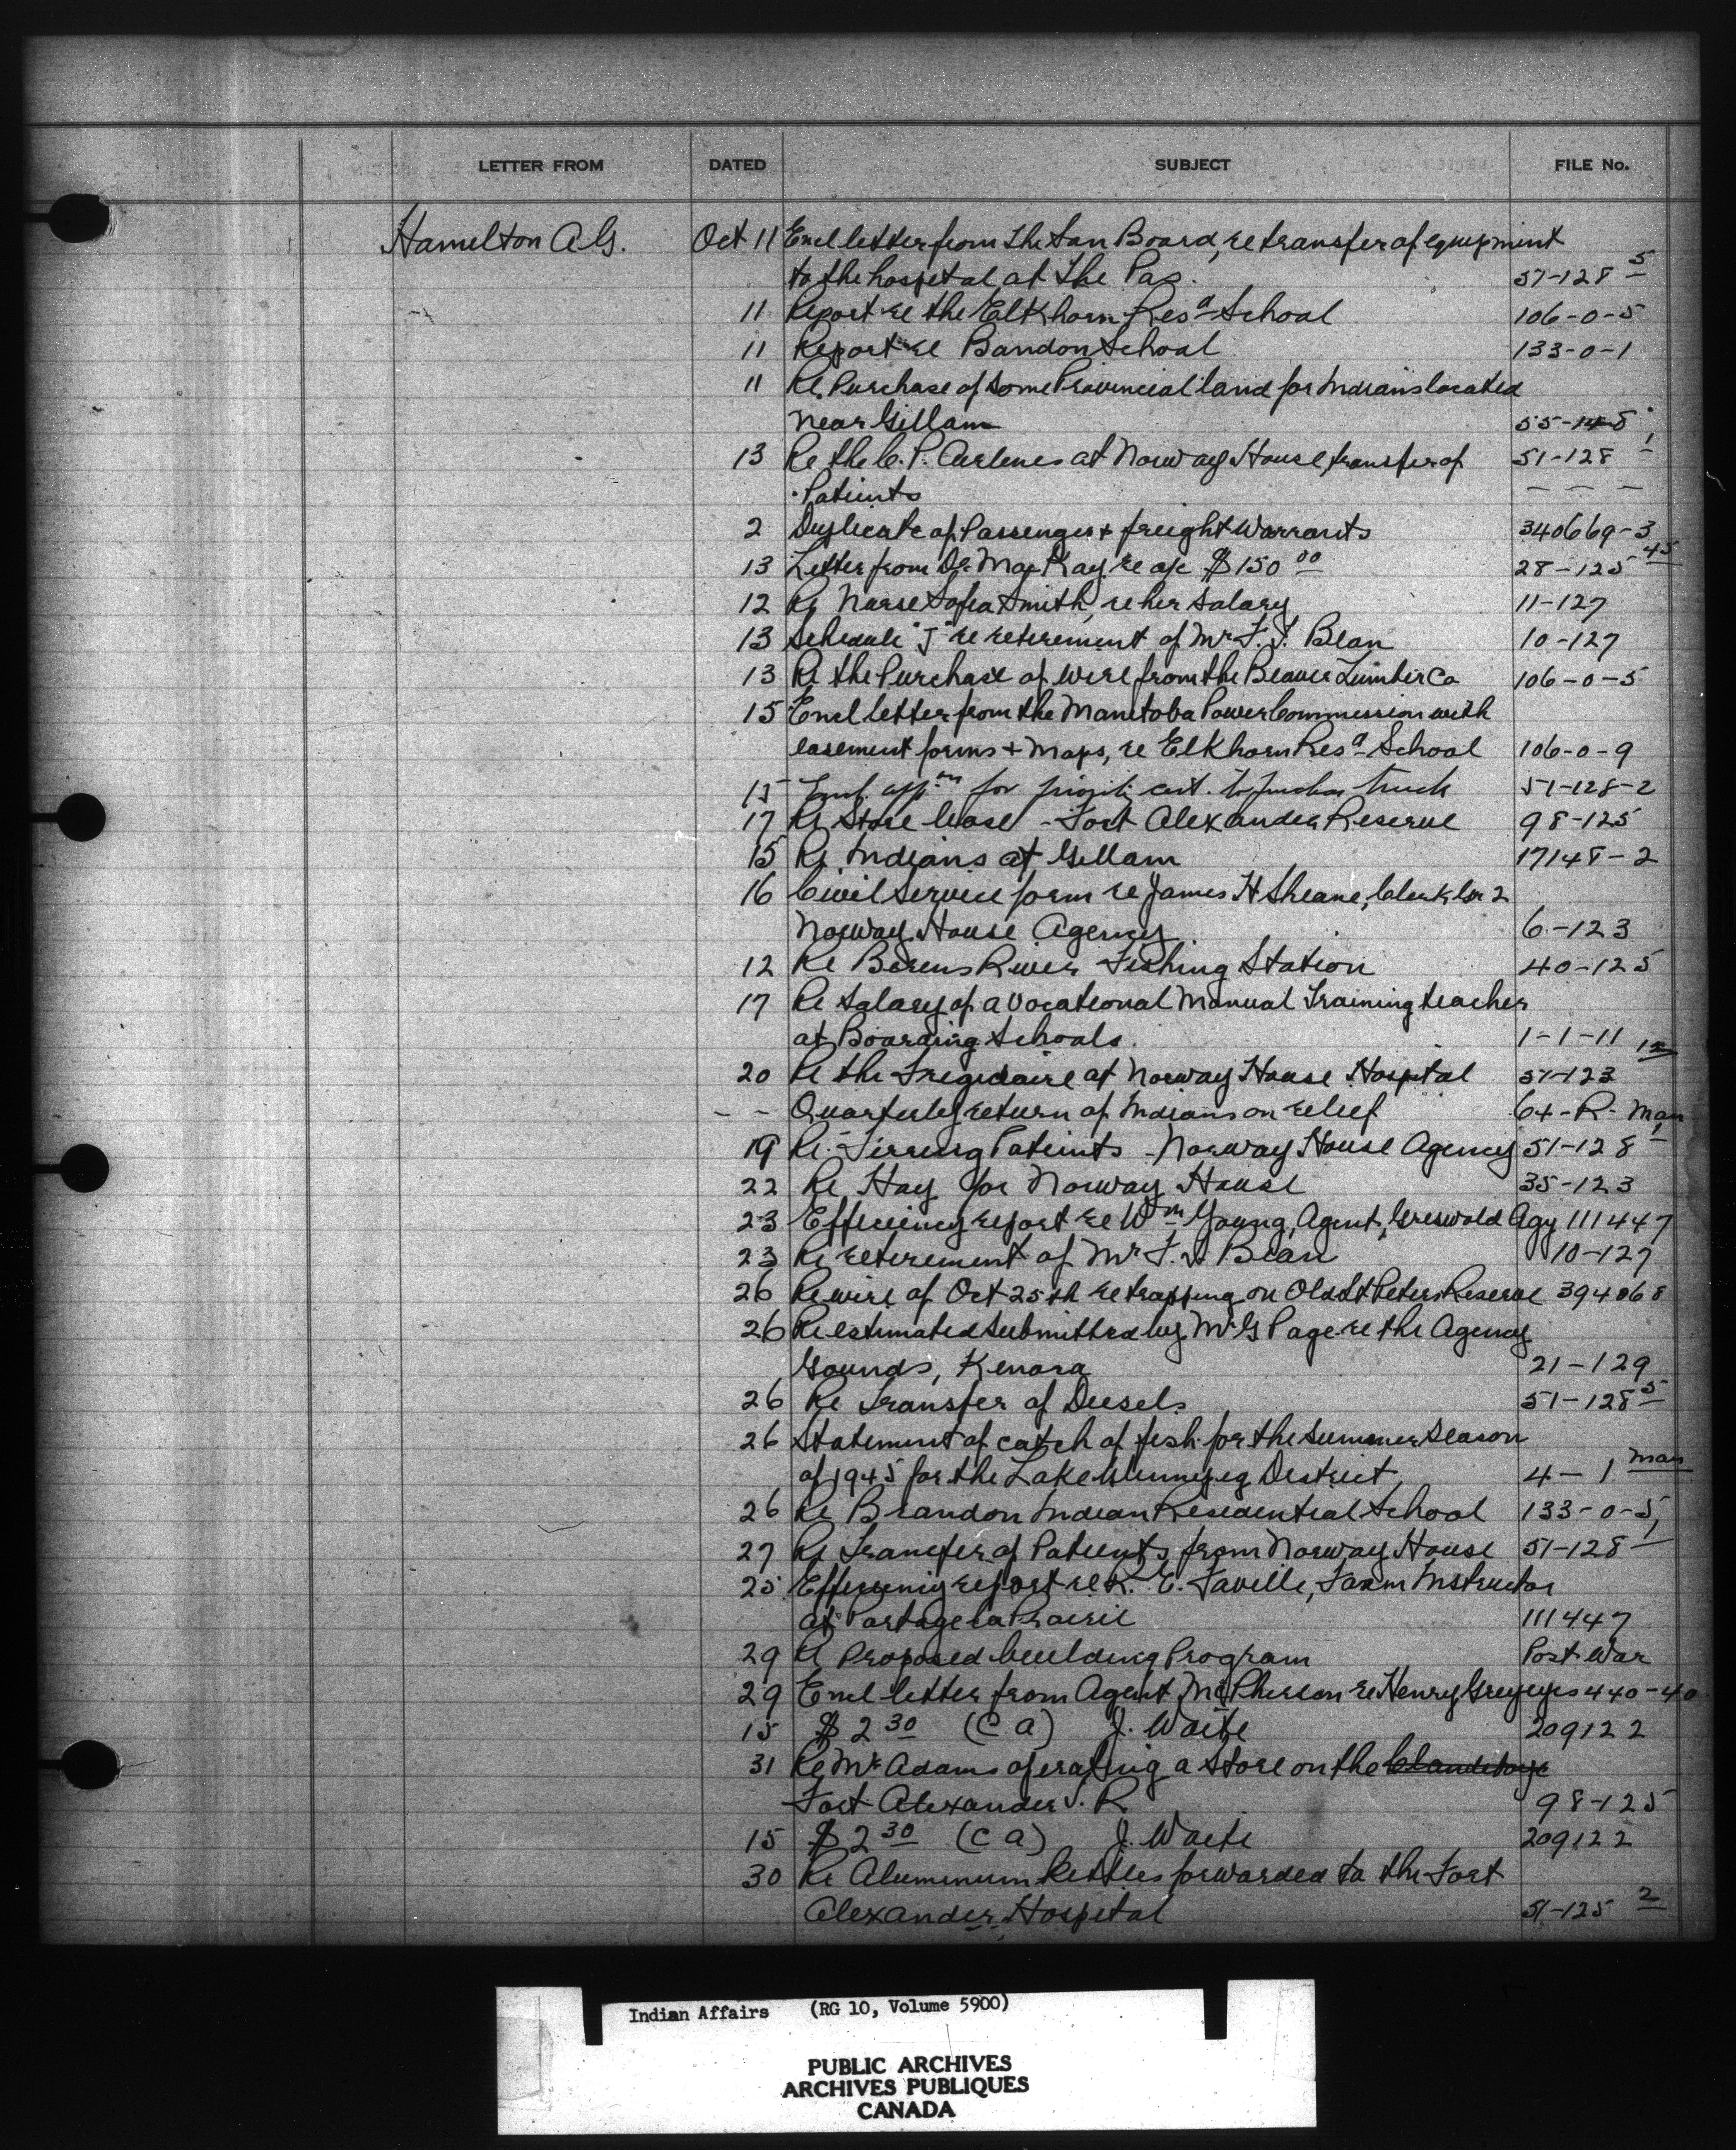 LETTER FROM DATED SUBJECT FILE No.
Hamilton A.G. Oct 11 Encl letter from the San Board, re transfer of equipment
to the hospital at The Pas. 51-128 5
11 Report re the Elkhorn Resa School 106-0-5
11 Report re Bandon School 133-0-1
11 Re Purchase of some Provincial land for Indians located
near Gillam 55-148
13 Re the C.P. Airlines at Norway House transfer of 51-128 1
Patients - - -
2 Duplicate of Passenger + freight Warrants 340669-3
13 Letter from Dr MacKay re a/c $150 00 28-125 45
12 Re Nurse Sofia Smith, re her Salary 11-127
13 Schedule "J" re retirement of Mr F.J. Bean 10-127
13 Re the Purchase of wire from the Beaver Lumber Co 106-0-5
15 Encl letter from the Manitoba Power Commission with
easement forms + Maps, re Elkhorn Resa School 106-0-9
15 Encl. appon for priority cert. to purchase truck 51-128-2
17 Re Store lease - Fort Alexander Reserve 98-125
15 Re Indians at Gillam 17148-2
16 Civil Service form re James H Sheane, Clerk Gr 2
Norway House Agency 6-123
12 Re Berens River Fishing Station 40-125
17 Re Salary of a Vocational Manual Training teacher
at Boarding Schools. 1-1-11
20 Re the Frigidaire at Norway House Hospital 51-123 12
- - Quarterly return of Indians on relief 64-R-Man
19 Re Patients - Norway House Agency 51-128 1
22 Re Hay for Norway House 35-123
23 Efficiency report re Wm Young, Agent, Griswold Agy 111447
23 Re retirement of Mr F.J. Bean 10-127
26 Re wire of Oct 25th re trapping on Old St Peters Reserve 394068
26 Re estimated submitted by Mr G Page re the Agency
Gounds, Kenora 21-129
26 Re Transfer of Diesels 51-128 5
26 Statement of catch of fish for the Summer Season
of 1945 for the Lake Winnipeg District 4-1 Man
26 Re Brandon Indian Residential School 133-0-5
27 Re Transfer of Patients from Norway House 51-128 1
25 Efficiency report re R. E. Faville, Farm Instructor
at Portage la Prairie 111447
29 Re Proposed building Program Post War
29 Encl letter from Agent McPherson re Henry Greyeyes 440-40
15 $2 30 (C a) J. Waite 209122
31 Re Mr Adams operating a Store on the Clandeboye
Fort Alexander I. R. 98-125
15 $2 30 (C a) J. Waite 209122
30 Re Aluminum Kettles forwarded to the Fort
Alexander Hospital 51-125 2
Indian Affairs (RG 10, Volume 5900)
PUBLIC ARCHIVES
ARCHIVES PUBLIQUES
CANADA